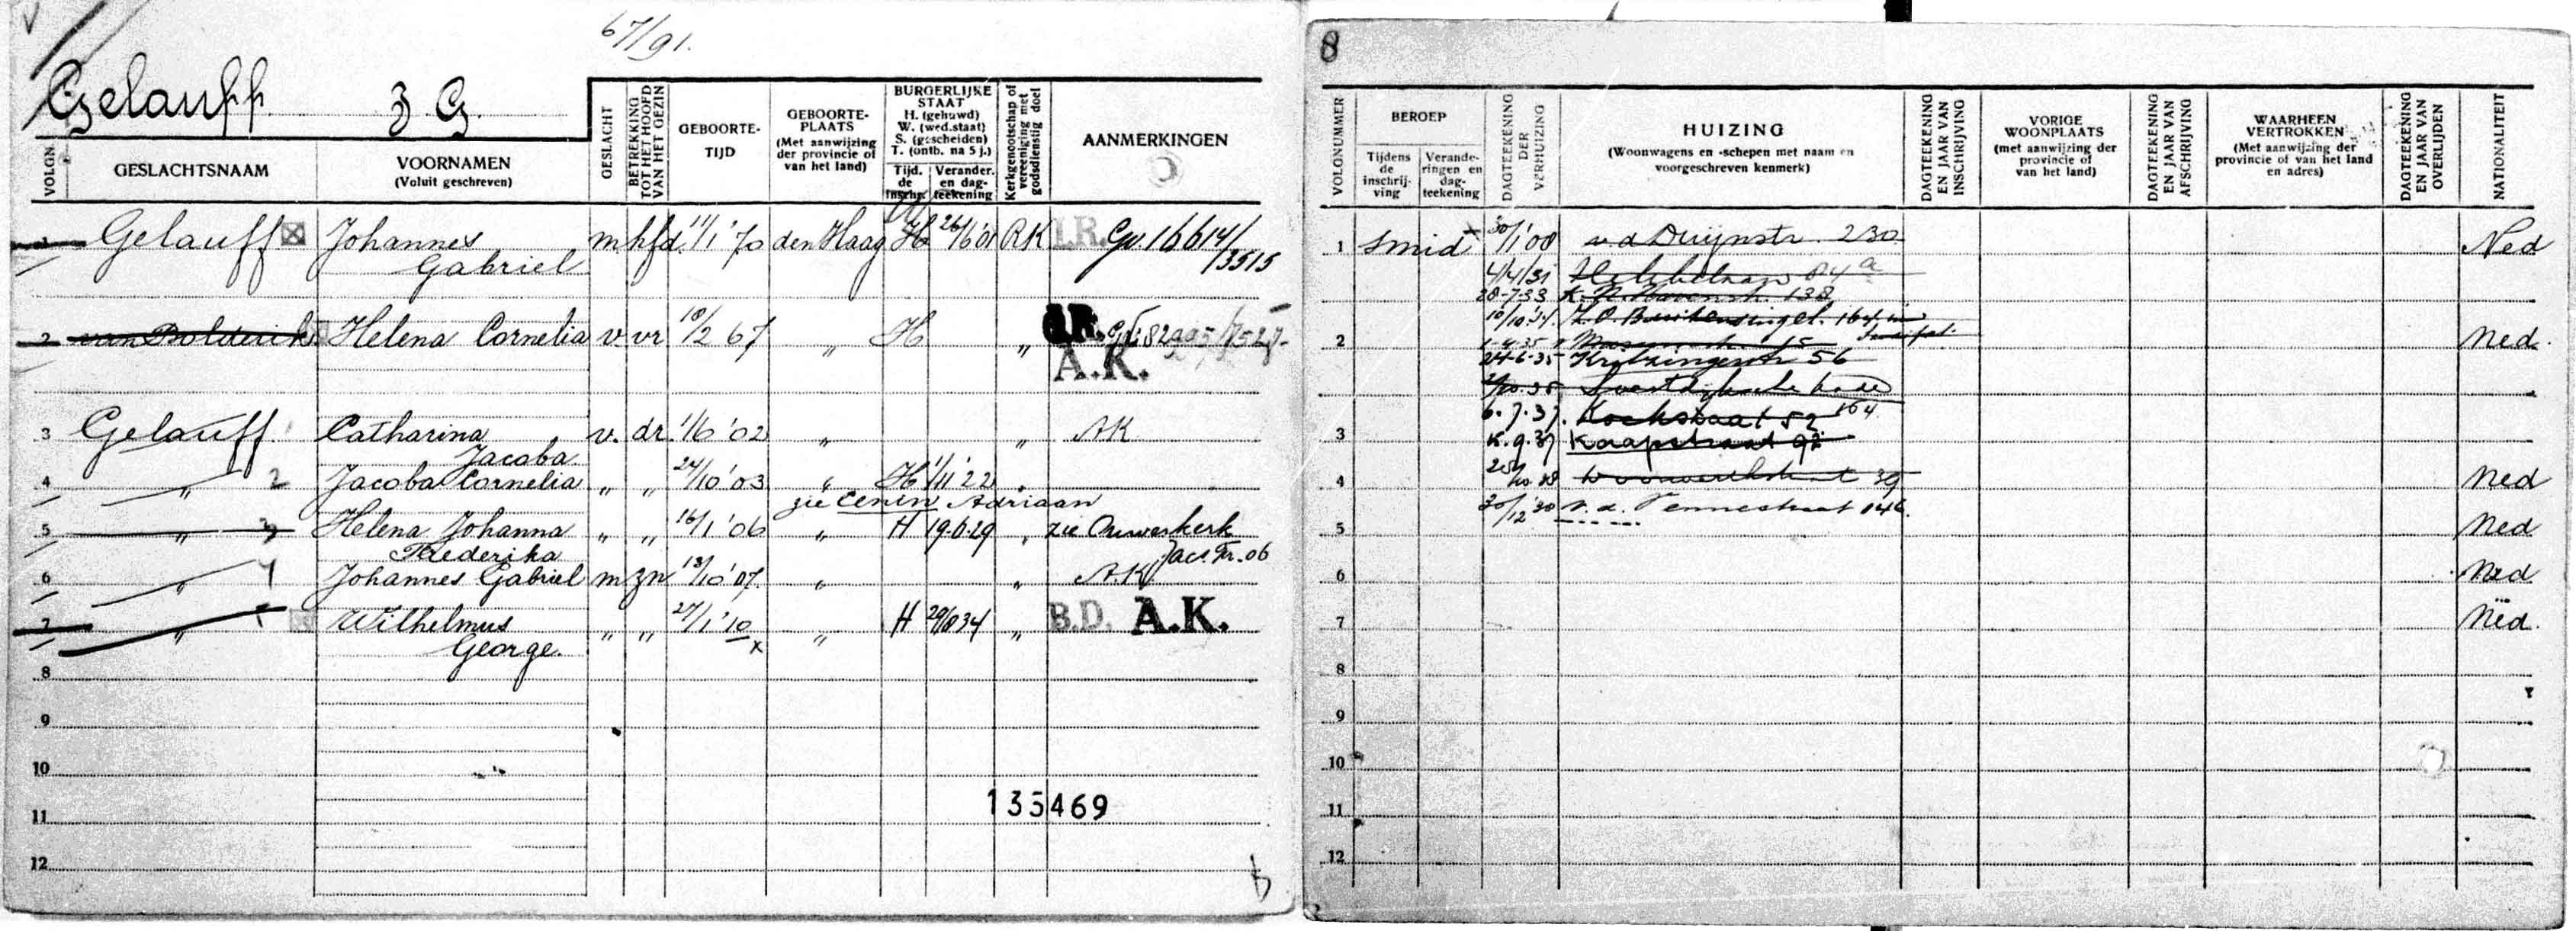 67/91.
Gelauff J. G.
VOLGN.
GESLACHTSNAAM
VOORNAMEN
(Voluit geschreven)
GESLACHT
BETREKKING
TOT HET HOOFD
VAN HET GEZIN
GEBOORTE-
TIJD
GEBOORTE-
PLAATS
(Met aanwijzing
der provincie of
van het land)
BURGERLIJKE
STAAT
H. (gehuwd)
W. (wed.staat)
S. (gescheiden)
T. (ontb. na 5 j.)
Tijd.
de
inschr.
Verander.
en dag-
teekening
Kerkgenootschap of
vereeniging met
godsdienstig doel
AANMERKINGEN
1 Gelauff Johannes m hfd 11/1 '70 den Haag H 26/6 '01 RK I.R. Gv. 16614/
Gabriel /3515
2 Helena Cornelia v vr 18/2 67 " H "
A.K.
3 Gelauff Catharina v. dr. 1/6 '02 " " AK
Jacoba
4 " 2 Jacoba Cornelia " " 24/10 '03 " H 1/11 '22 "
zie Adriaan
5 " 3 Helena Johanna " " 16/1 '06 " H 19.6.29 " zie Ouwerkerk
Frederika Jac. Fr. 06
6 " 4 Johannes Gabriel m zn 13/10 '07. " " A.K.
7 " Wilhelmus " " 27/1 '10 " H 29/8 34 " B.D. A.K.
George. x
8
9
10
11
12
135469
8
VOLGNUMMER
BEROEP
Tijdens
de
inschrij-
ving
Verande-
ringen en
dag-
teekening
DAGTEEKENING
DER
VERHUIZING
HUIZING
(Woonwagens en -schepen met naam en
voorgeschreven kenmerk)
DAGTEEKENING
EN JAAR VAN
INSCHRIJVING
VORIGE
WOONPLAATS
(met aanwijzing der
provincie of
van het land)
DAGTEEKENING
EN JAAR VAN
AFSCHRIJVING
WAARHEEN
VERTROKKEN
(Met aanwijzing der
provincie of van het land
en adres)
DAGTEEKENING
EN JAAR VAN
OVERLIJDEN
NATIONALITEIT
1 smid x 30/1 '08 v. d Duijnstr. 230 Ned
4/4/31 84 a
28-7-33 138
10/10.'34. Z. O. Buitensingel. 164
2 Ned.
24-6-35 Kritzingerstr 56
Soestdijksche kade
6.7.37. Kochstraat 52 164
3 15.9.37 Kaapstraat 92
4 39 Ned
30/12 '30 v. d. Vennestraat 146.
5 Ned
6 Ned
7 Ned.
8
9
10
11
12